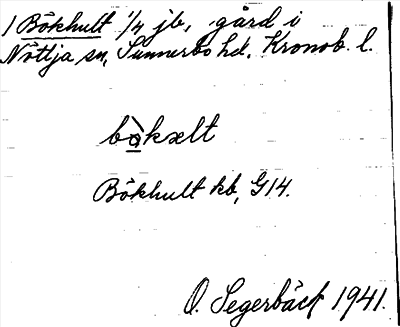 1 Bökhult 1/4 jb, gård i
Nöttja sn, Sunnerbo hd, Kronob. l.
bø̀kælt
Bökhult kb, G14.
O. Segerbäck 1941.